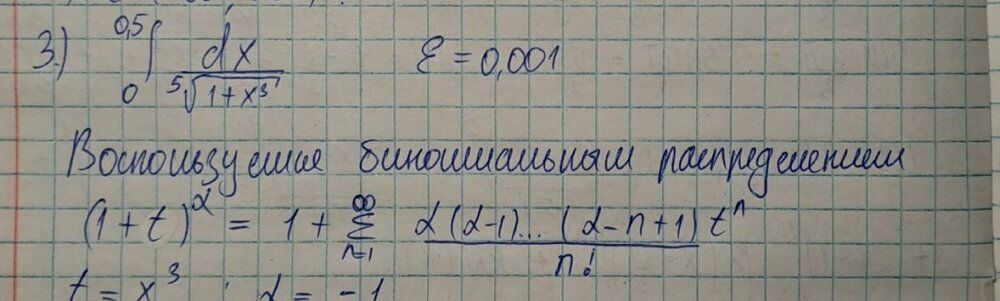 3.) ∫₀^0,5 dx / ⁵√(1+x³) ε = 0,001
Воспользуемся биномиальным распределением
(1+t)^α = 1 + ∑_{n=1}^{∞} α(α-1)...(α-n+1) t^n / n!
t = x³ ; α = -1